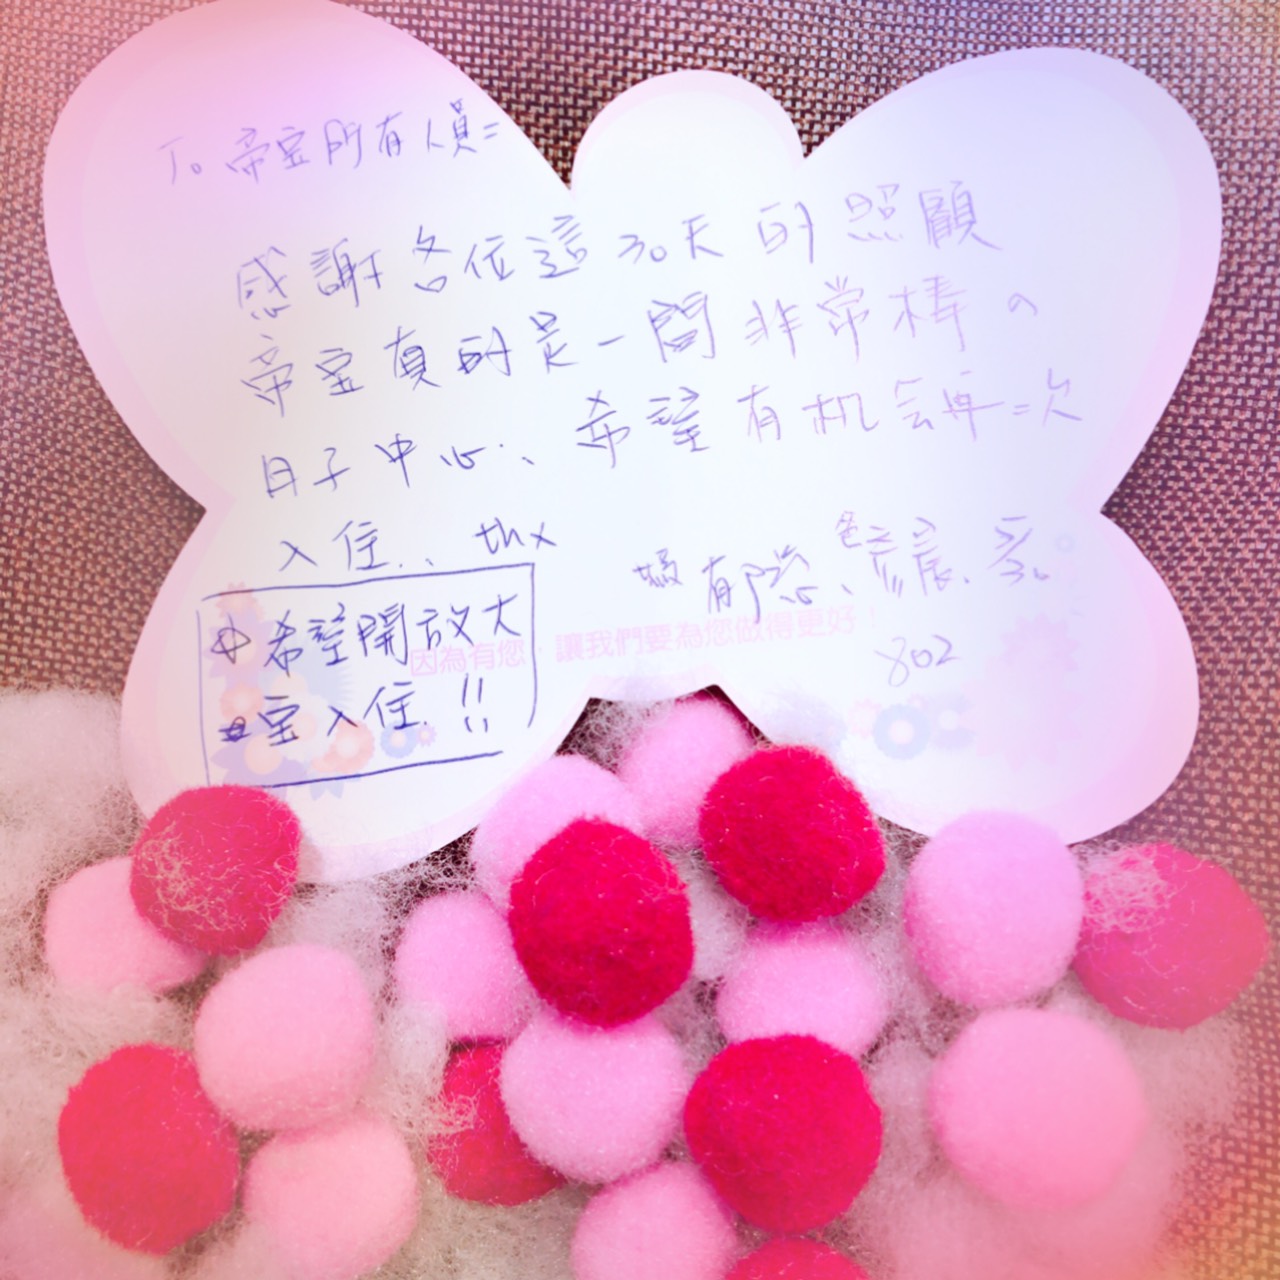 To 帝宝所有人員=
感謝各位這30天的照顧
帝宝真的是一間非常棒の
月子中心、希望有机会再二次
入住.. thx
爸
有
802
希望開放大
宝入住!!
因為有您,讓我們要為您做得更好!